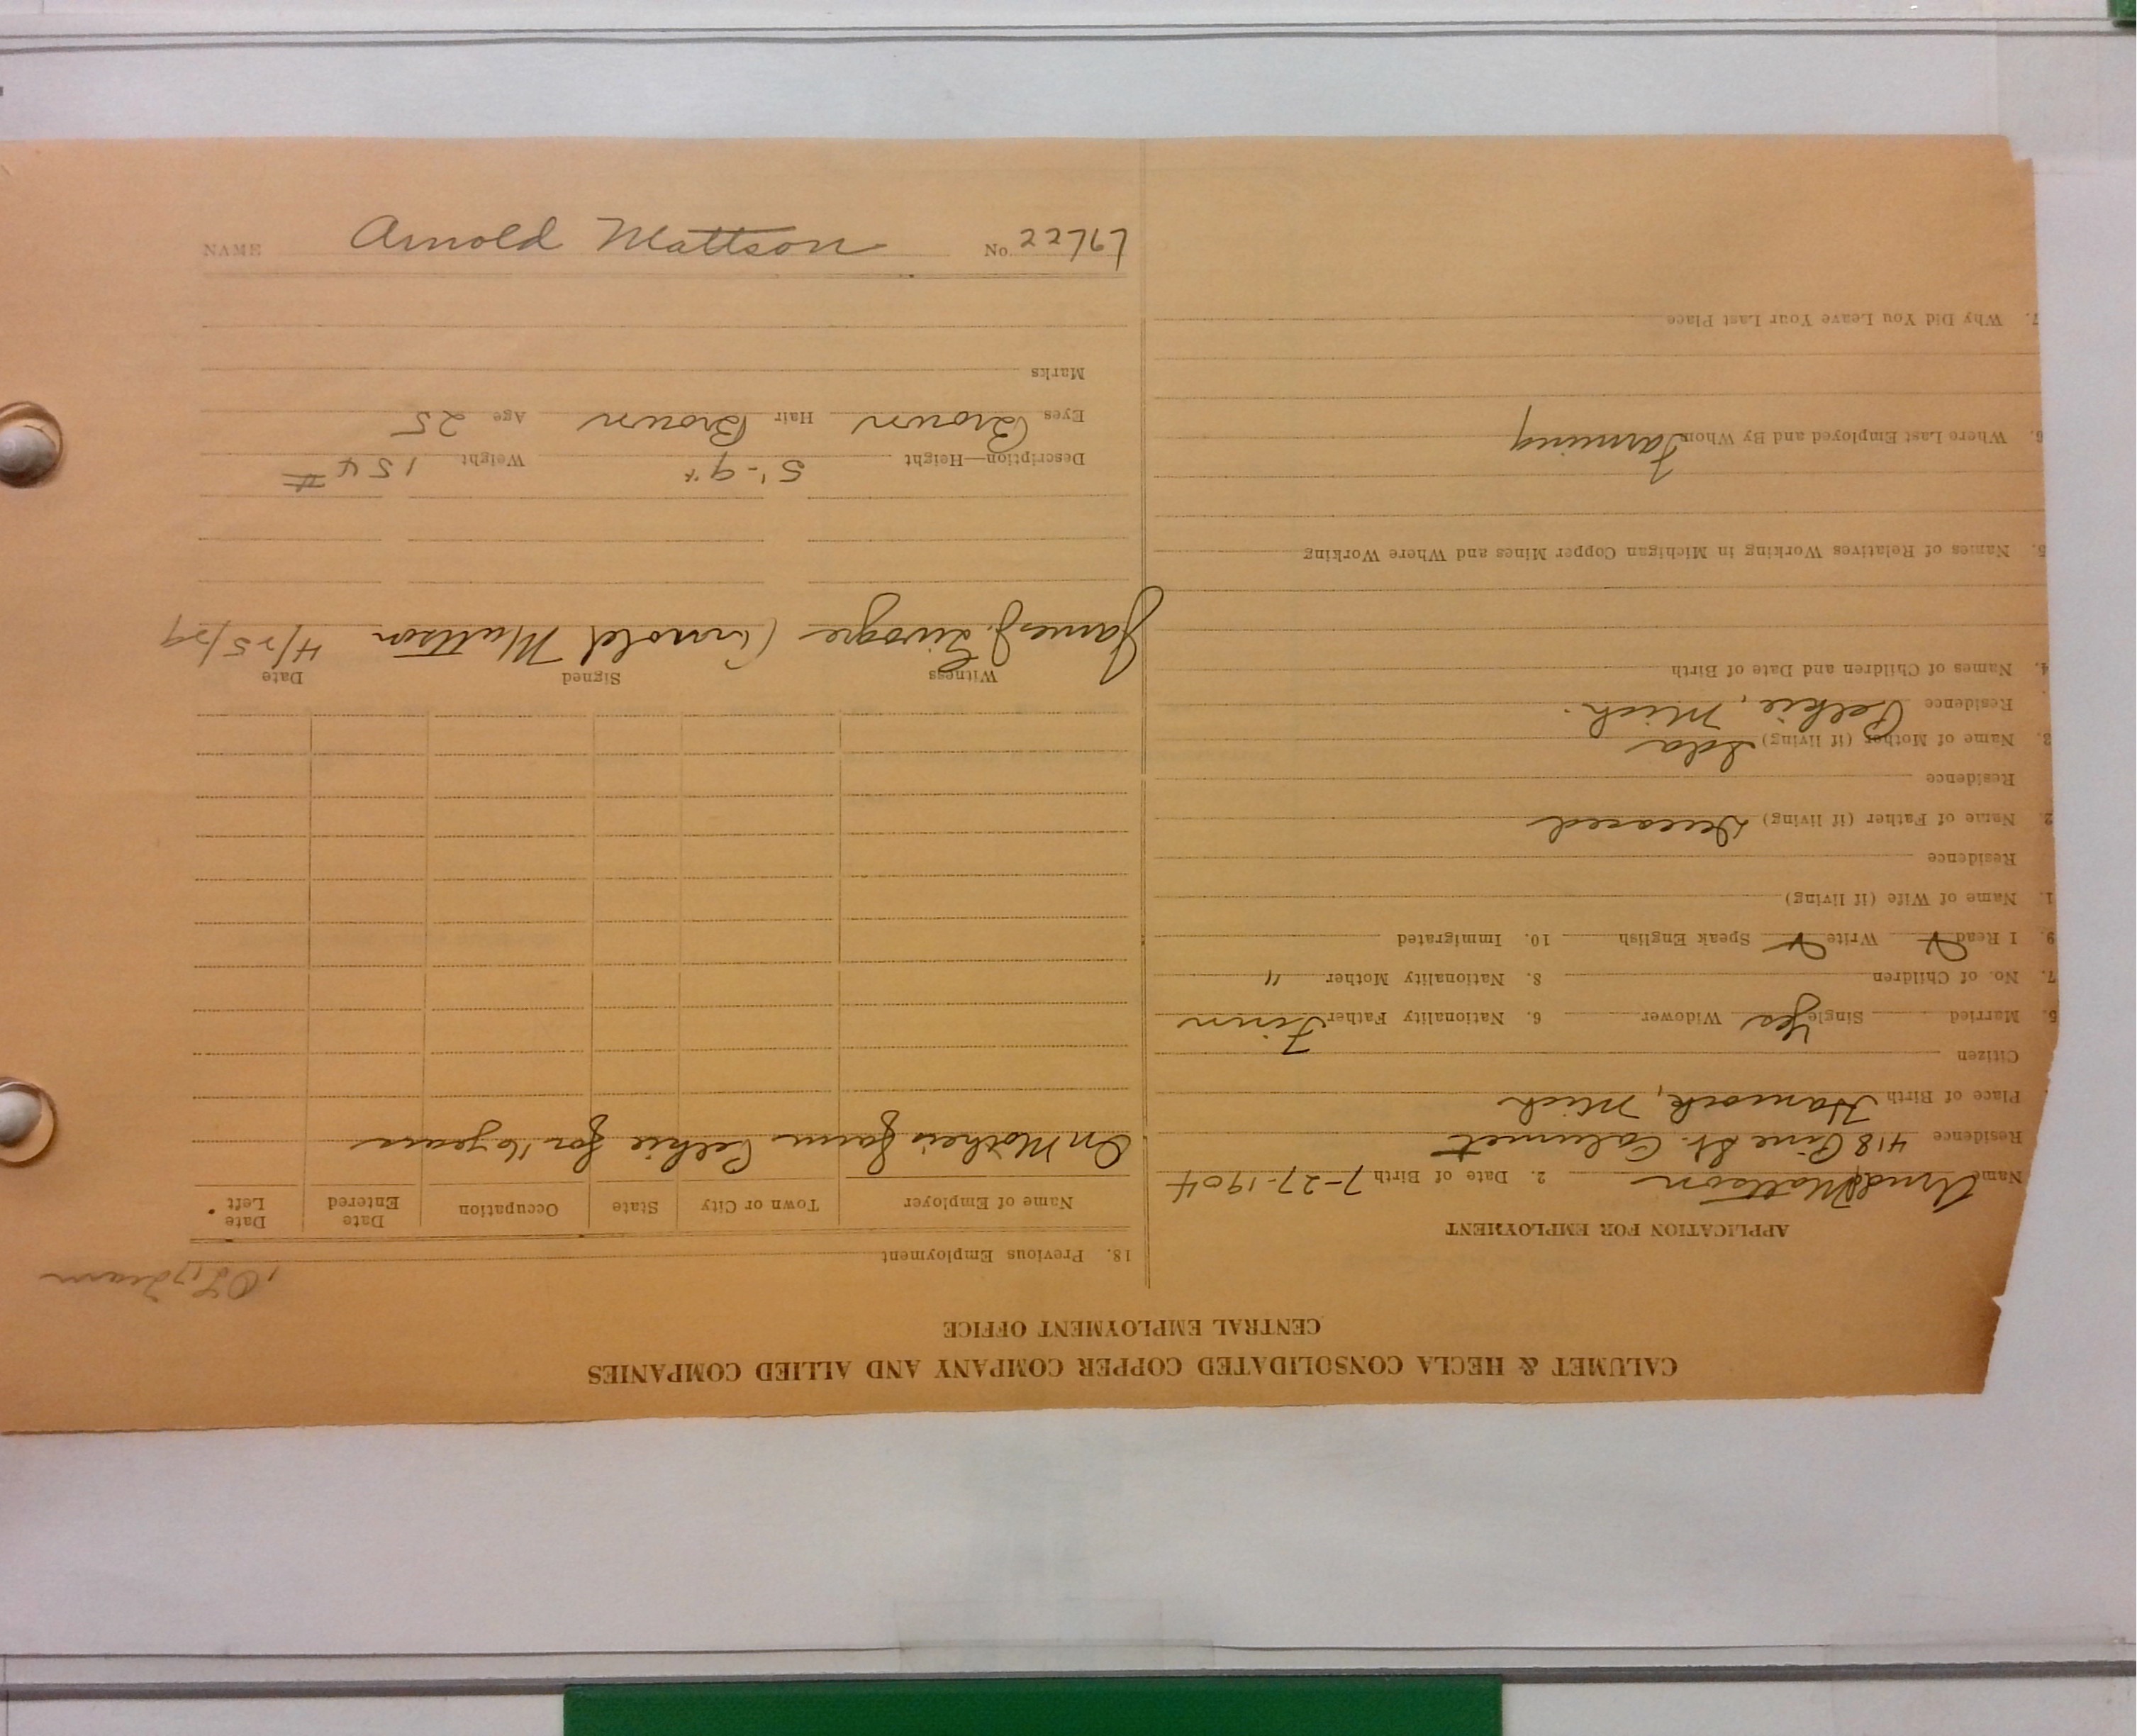 CALUMET & HECLA CONSOLIDATED COPPER COMPANY AND ALLIED COMPANIES
CENTRAL EMPLOYMENT OFFICE
APPLICATION FOR EMPLOYMENT
Name Arnold Mattson 2. Date of Birth 7-27-1904
Residence 418 Pine St. Calumet
Place of Birth Hancock, Mich
Citizen
5. Married Single Yes Widower 6. Nationality Father Finn
7. No. of Children 8. Nationality Mother "
9. I Read Write Speak English 10. Immigrated
1. Name of Wife (if living)
Residence
2. Name of Father (if living) Deceased
Residence
3. Name of Mother (if living) Ida
Residence Pelkie, Mich.
4. Names of Children and Date of Birth
5. Names of Relatives Working in Michigan Copper Mines and Where Working
6. Where Last Employed and By Whom Farming
7. Why Did You Leave Your Last Place
18. Previous Employment
Name of Employer Town or City State Occupation Date Entered Date Left
On Mother's farm Pelkie for 16 years
Witness Signed Date
James J. Arnold Mattson 4/25/29
Description—Height 5'-9" Weight 154 #
Eyes Brown Hair Brown Age 25
Marks
NAME Arnold Mattson No. 22767